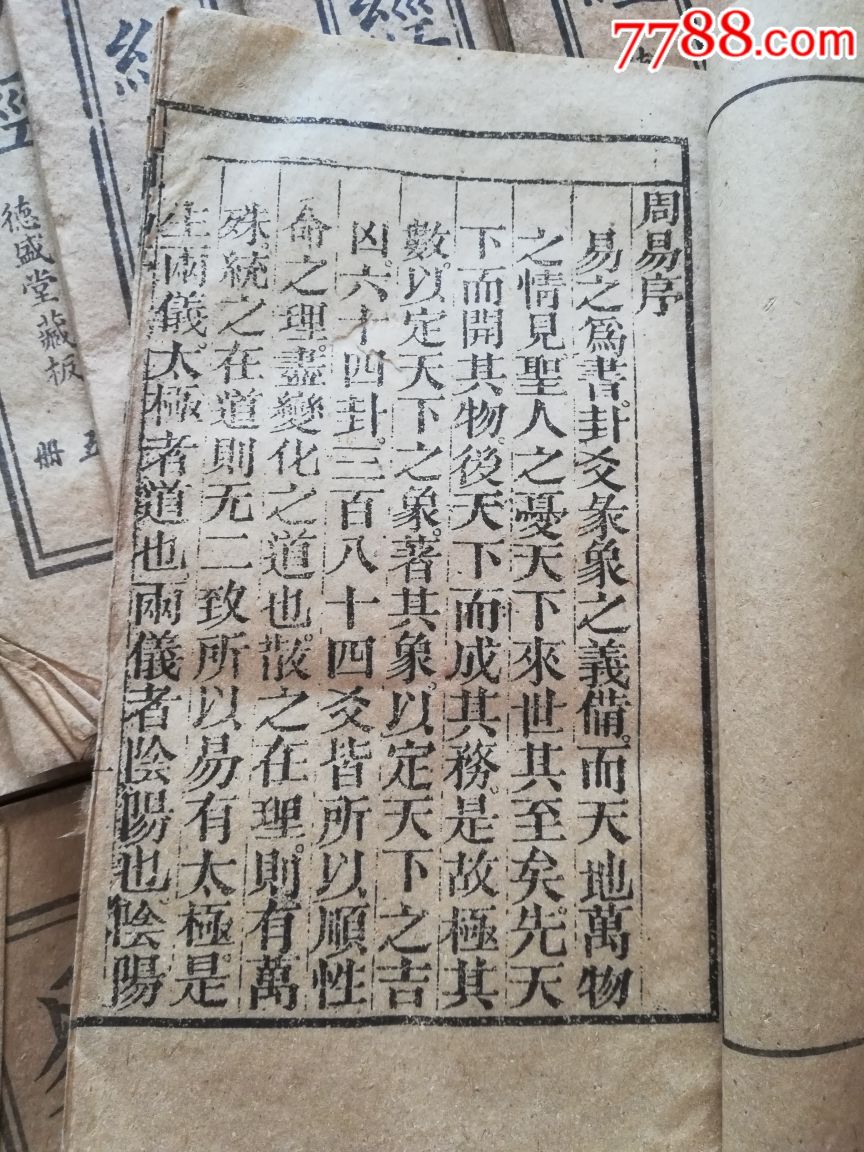 7788.com
周易序
易之爲書。卦爻彖象之義備。而天地萬物
之情見聖人之憂天下來世其至矣。先天
下而開其物。後天下而成其務。是故極其
數。以定天下之象。著其象。以定天下之吉
凶。六十四卦。三百八十四爻。皆所以順性
命之理。盡變化之道也。散之在理。則有萬
殊。統之在道則无二致所以易有太極。是
生兩儀。太極者道也兩儀者陰陽也。陰陽
經
經
德盛堂藏板
五册